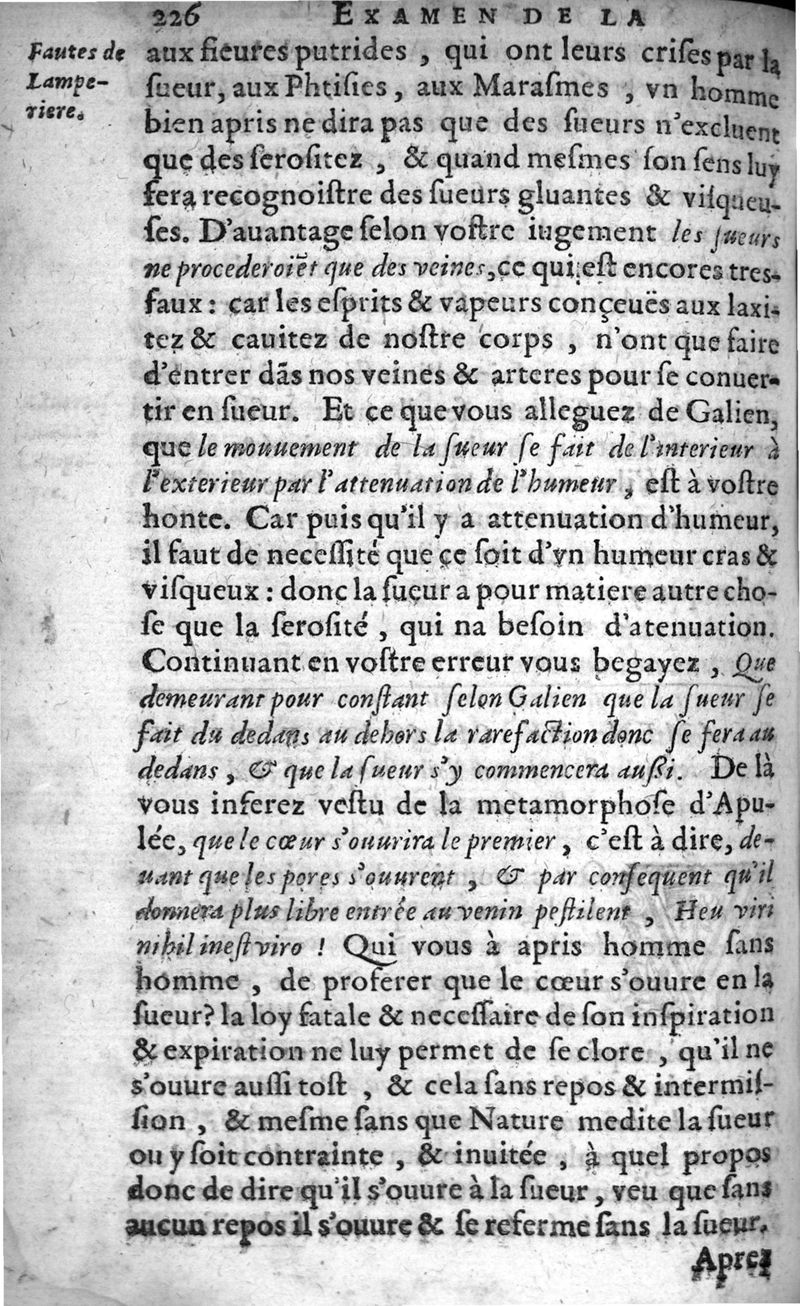 226 EXAMEN DE LA
Fautes de
Lampe-
riere.
aux fieures putrides , qui ont leurs criſes par la
ſueur, aux Phtiſies , aux Maraſmes , vn homme
bien apris ne dira pas que des ſueurs n'excluent
que des ſeroſitez , & quand meſmes ſon ſens luy
fera recognoiſtre des ſueurs gluantes & viſqueu-
ſes. D'auantage ſelon voſtre iugement les ſueurs
ne procederoiẽt que des veines, ce qui eſt encores tres-
faux : car les eſprits & vapeurs conçeuës aux laxi-
tez & cauitez de noſtre corps , n'ont que faire
d'entrer dãs nos veines & arteres pour ſe conuer-
tir en ſueur. Et ce que vous alleguez de Galien,
que le mouuement de la ſueur ſe fait de l'interieur à
l'exterieur par l'attenuation de l'humeur , eſt à voſtre
honte. Car puis qu'il y a attenuation d'humeur,
il faut de neceſſité que ce ſoit d'vn humeur cras &
viſqueux : donc la ſueur a pour matiere autre cho-
ſe que la ſeroſité , qui na beſoin d'atenuation.
Continuant en voſtre erreur vous begayez , Que
demeurant pour conſtant ſelon Galien que la ſueur ſe
fait du dedans au dehors la rarefaction donc ſe fera au
dedans , & que la ſueur s'y commencera auſsi. De là
vous inferez veſtu de la metamorphoſe d'Apu-
lée, que le cœur s'ouurira le premier , c'eſt à dire, de-
uant que les pores s'ouurent , & par conſequent qu'il
donnera plus libre entrée au venin peſtilent , Heu viri
nihil ineſt viro ! Qui vous à apris homme ſans
homme , de proferer que le cœur s'ouure en la
ſueur? la loy fatale & neceſſaire de ſon inſpiration
& expiration ne luy permet de ſe clore , qu'il ne
s'ouure auſſi toſt , & cela ſans repos & intermiſ-
ſion , & meſme ſans que Nature medite la ſueur
ou y ſoit contrainte , & inuitée , à quel propos
donc de dire qu'il s'ouure à la ſueur, veu que ſans
aucun repos il s'ouure & ſe referme ſans la ſueur.
Aprez